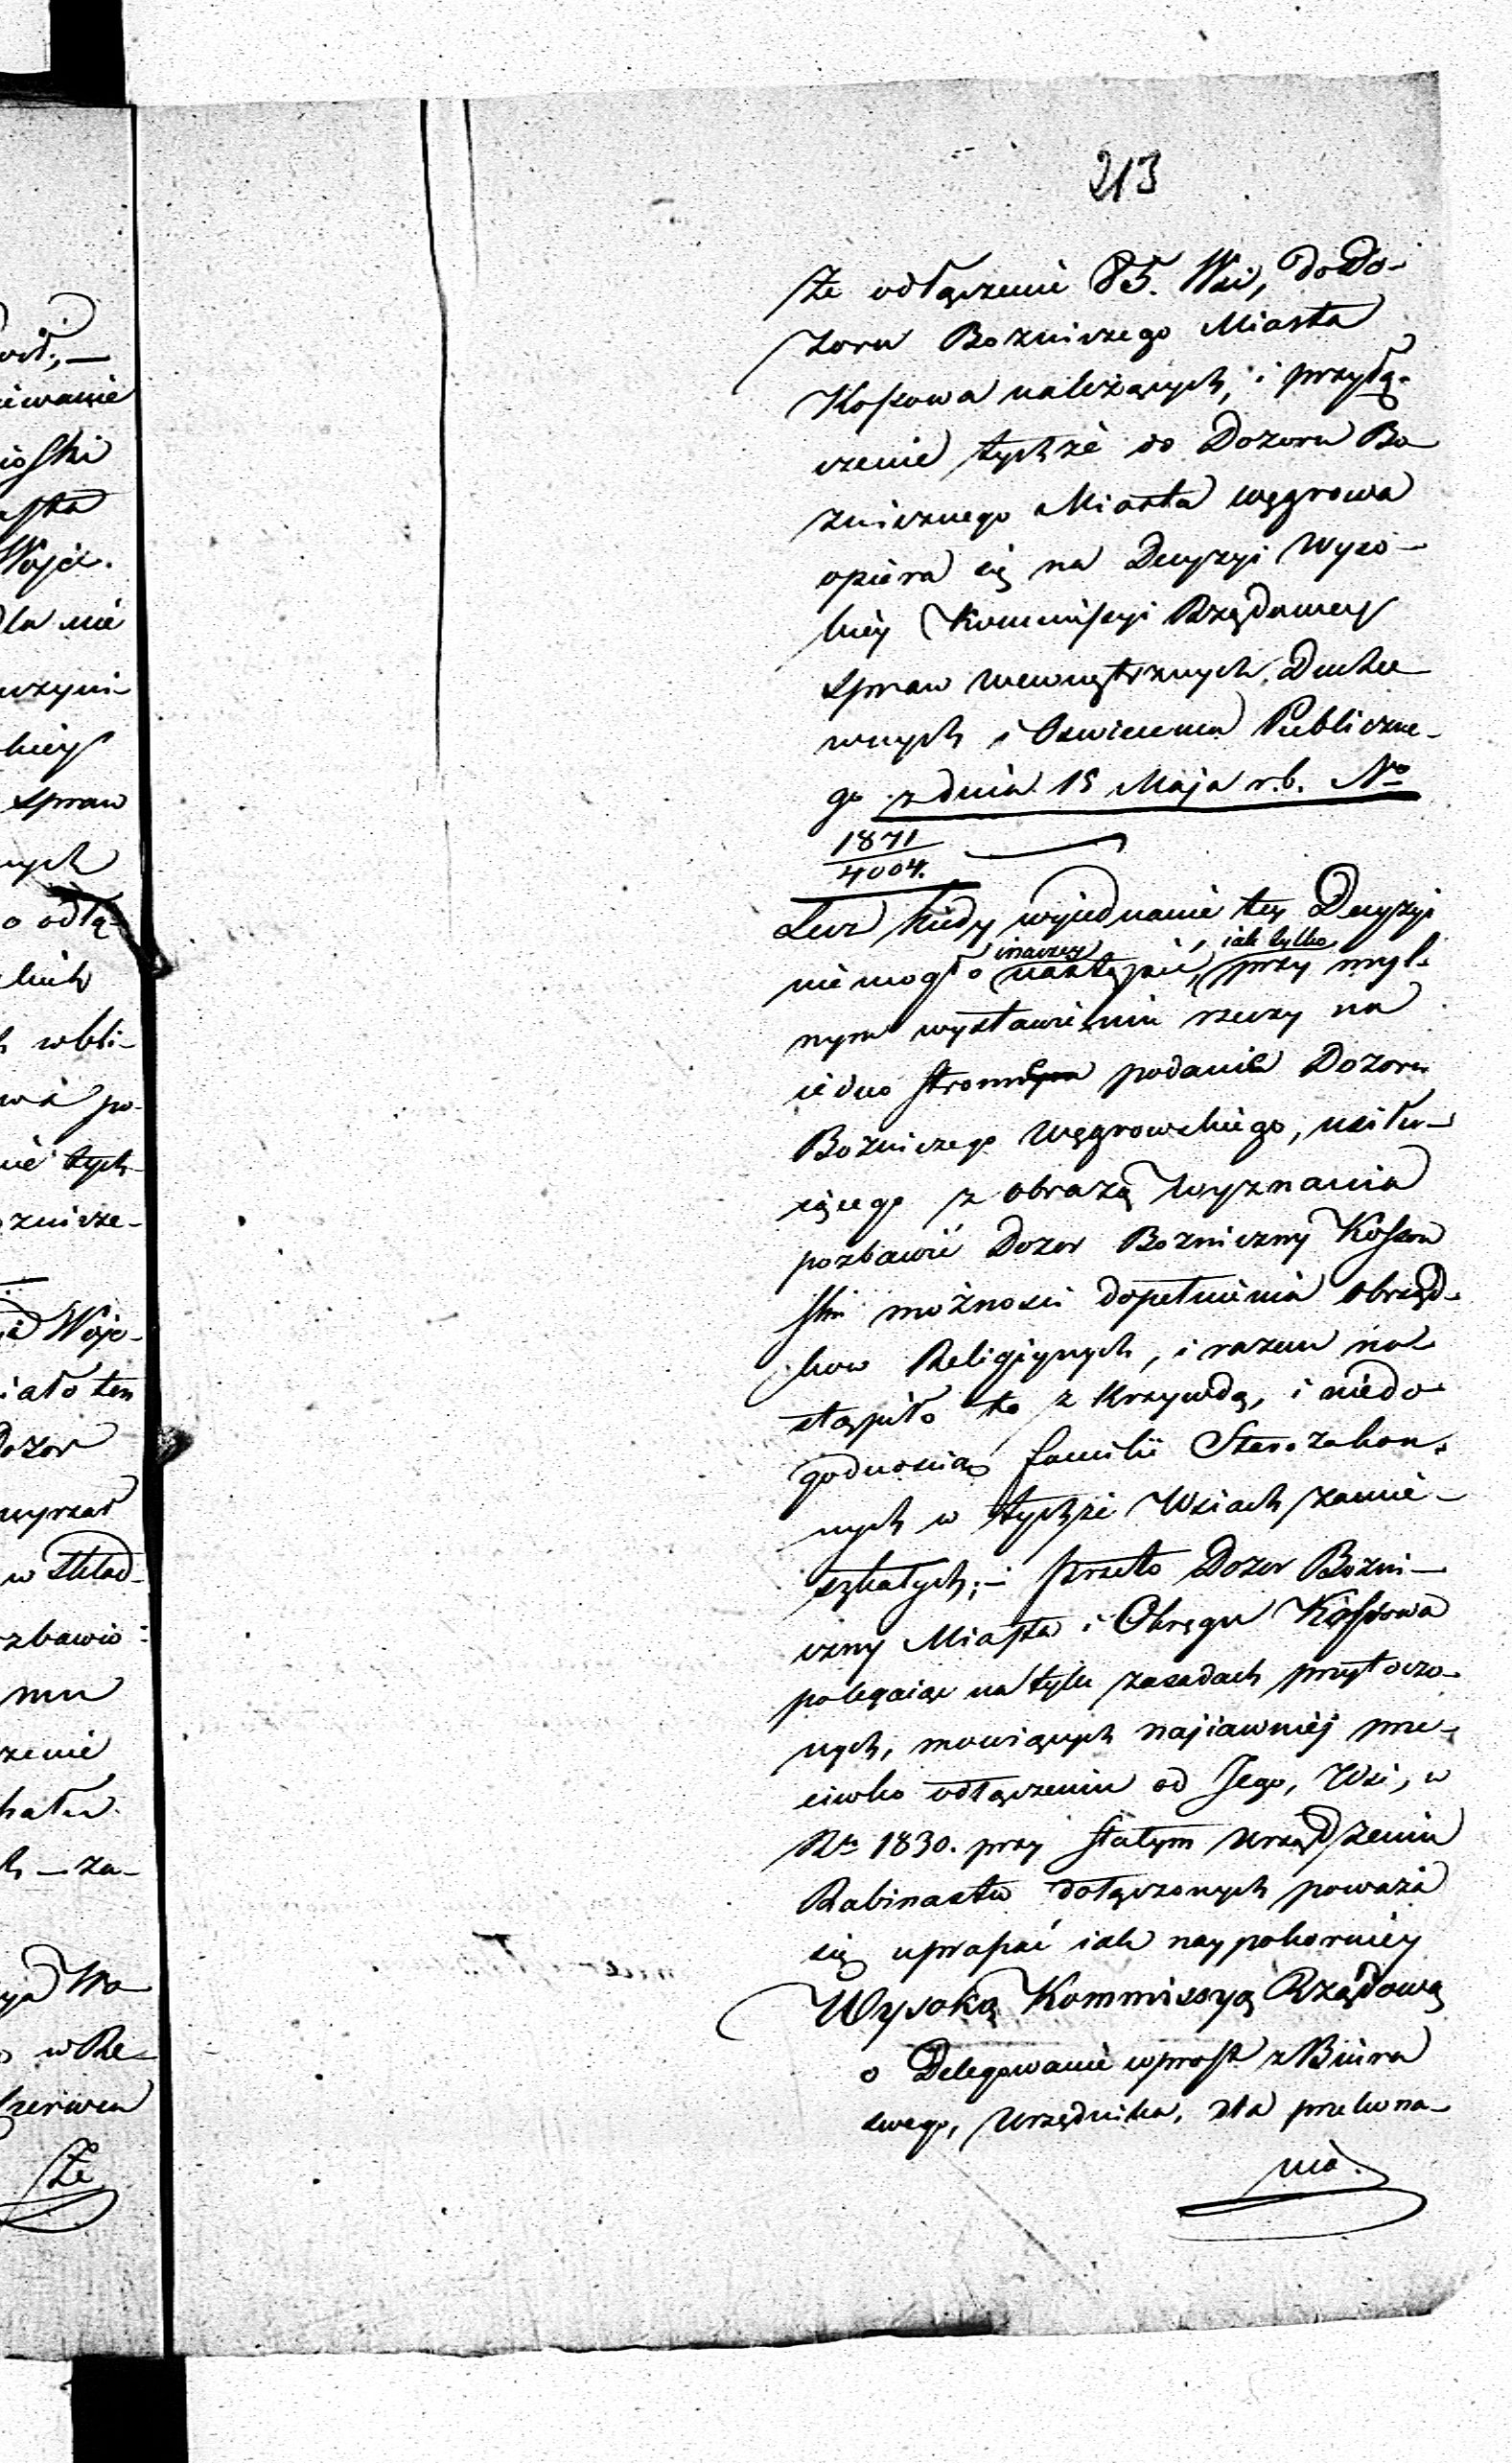 213
że odłączenie 85. Wsi, do Do-
zoru Bozniczego Miasta
Kossowa należących, i przyłą-
czenie tychże do Dozoru Bo-
znicznego Miasta Węgrowa
opiera się na Decyzyi Wyso-
kiéy Kommissyi Rządowey
Spraw Wewnętrznych, Ducho-
wnych i Oswiecenia Publiczne-
go z dnia 15 Maja r.b. No
1871
4004.
Lecz kiedy wyiednanie tey Decyzyi
inaczey iak tylko
nie mogło nastąpić, przy myl-
nym wystawieniu rzeczy na
iedno stronn podanie Dozoru
Bozniczego Węgrowskiego, usiłu-
iącego z obrazą Wyznania
pozbawić Dozor Bozniczny Kossow
ski możności dopełnienia obrząd-
kow Religiynych, i razem na-
stąpiło to z krzywdą, i niedo-
godnoscią familii Starozakon-
nych w tychże Wsiach zamie-
szkałych;- przeto Dozor Bozni-
czny Miasta i Okręgu Kossowa
polegaiąc na tylu zasadach przytoczo-
nych, mowiących najiawniéj prze-
ciwko odłączeniu od Jego, Wsi, w
Rku 1830. przy stałym urządzeniu
Rabinastw dołączonych poważa
się upraszać iak naypokorniéy
Wysoką Kommissyą Rządową
o Delegowanie wprost z Biura
swego, Urzędnika, dla przekona-
nia.
ewanie
Wojew.
dla nie
uczyni-
kiey
Spraw
nych
o odłą-
kich
wbli-
po-
nie tych-
znicze-
Woje-
iało ten
Dozor
w skład
zbawio-
mu
zenie
- za-
w Rk
Czerwca
że